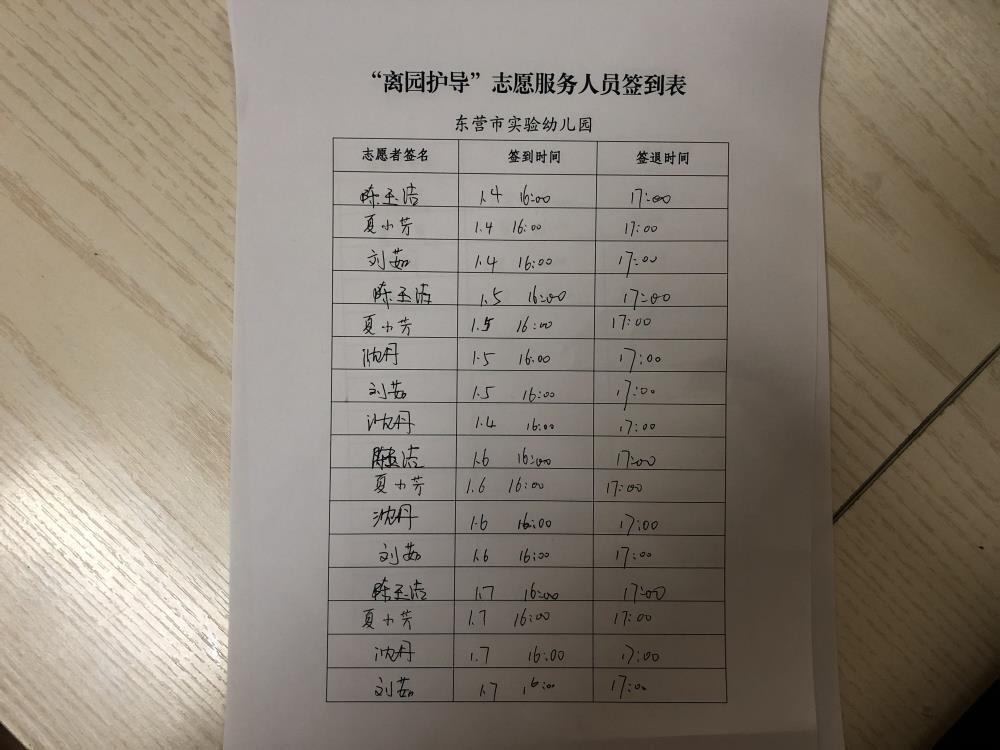 “离园护导”志愿服务人员签到表
东营市实验幼儿园
志愿者签名 签到时间 签退时间
陈玉洁 1.4 16:00 17:00
夏小芳 1.4 16:00 17:00
刘茹 1.4 16:00 17:00
陈玉洁 1.5 16:00 17:00
夏小芳 1.5 16:00 17:00
沈丹 1.5 16:00 17:00
刘茹 1.5 16:00 17:00
沈丹 1.4 16:00 17:00
陈玉洁 1.6 16:00 17:00
夏小芳 1.6 16:00 17:00
沈丹 1.6 16:00 17:00
刘茹 1.6 16:00 17:00
陈玉洁 1.7 16:00 17:00
夏小芳 1.7 16:00 17:00
沈丹 1.7 16:00 17:00
刘茹 1.7 16:00 17:00